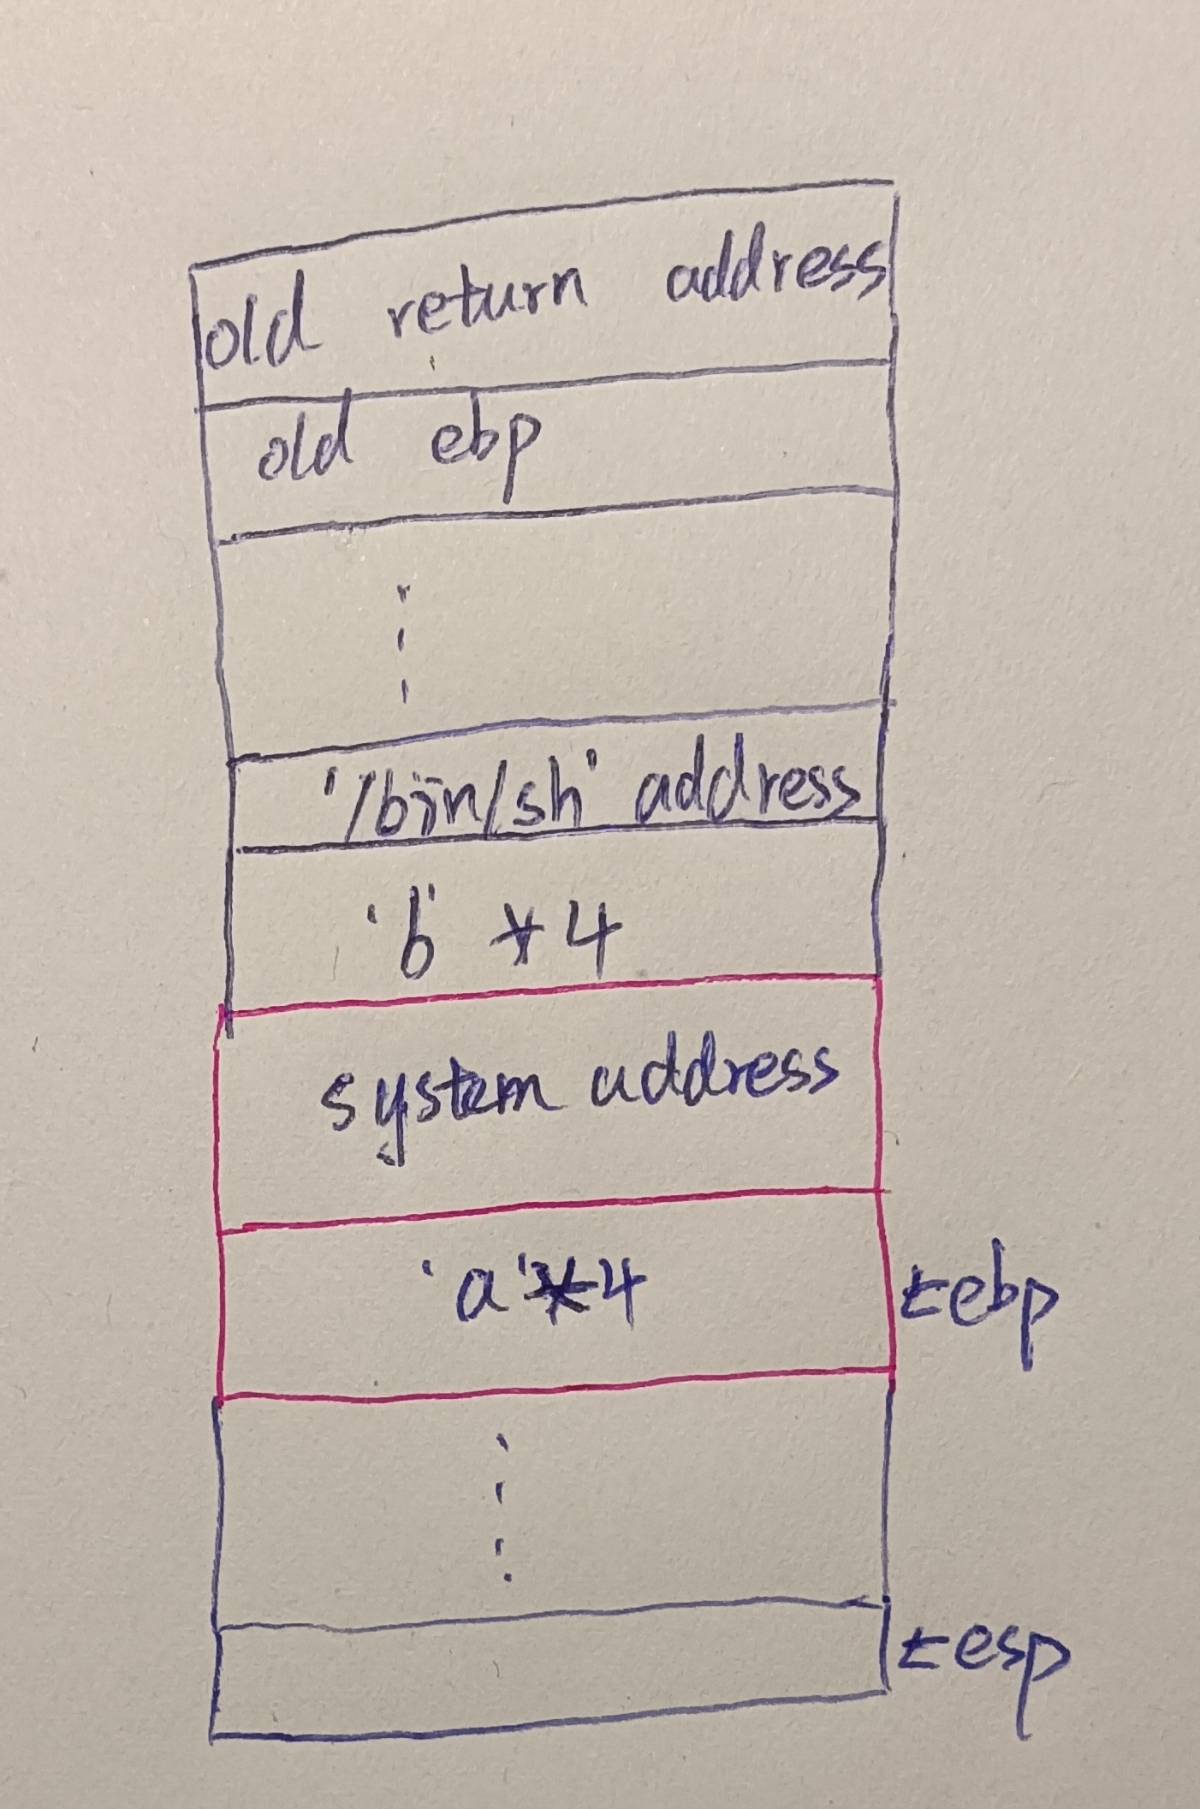 old return address
old ebp
'/bin/sh' address
'b' *4
system address
'a'*4
←ebp
←esp